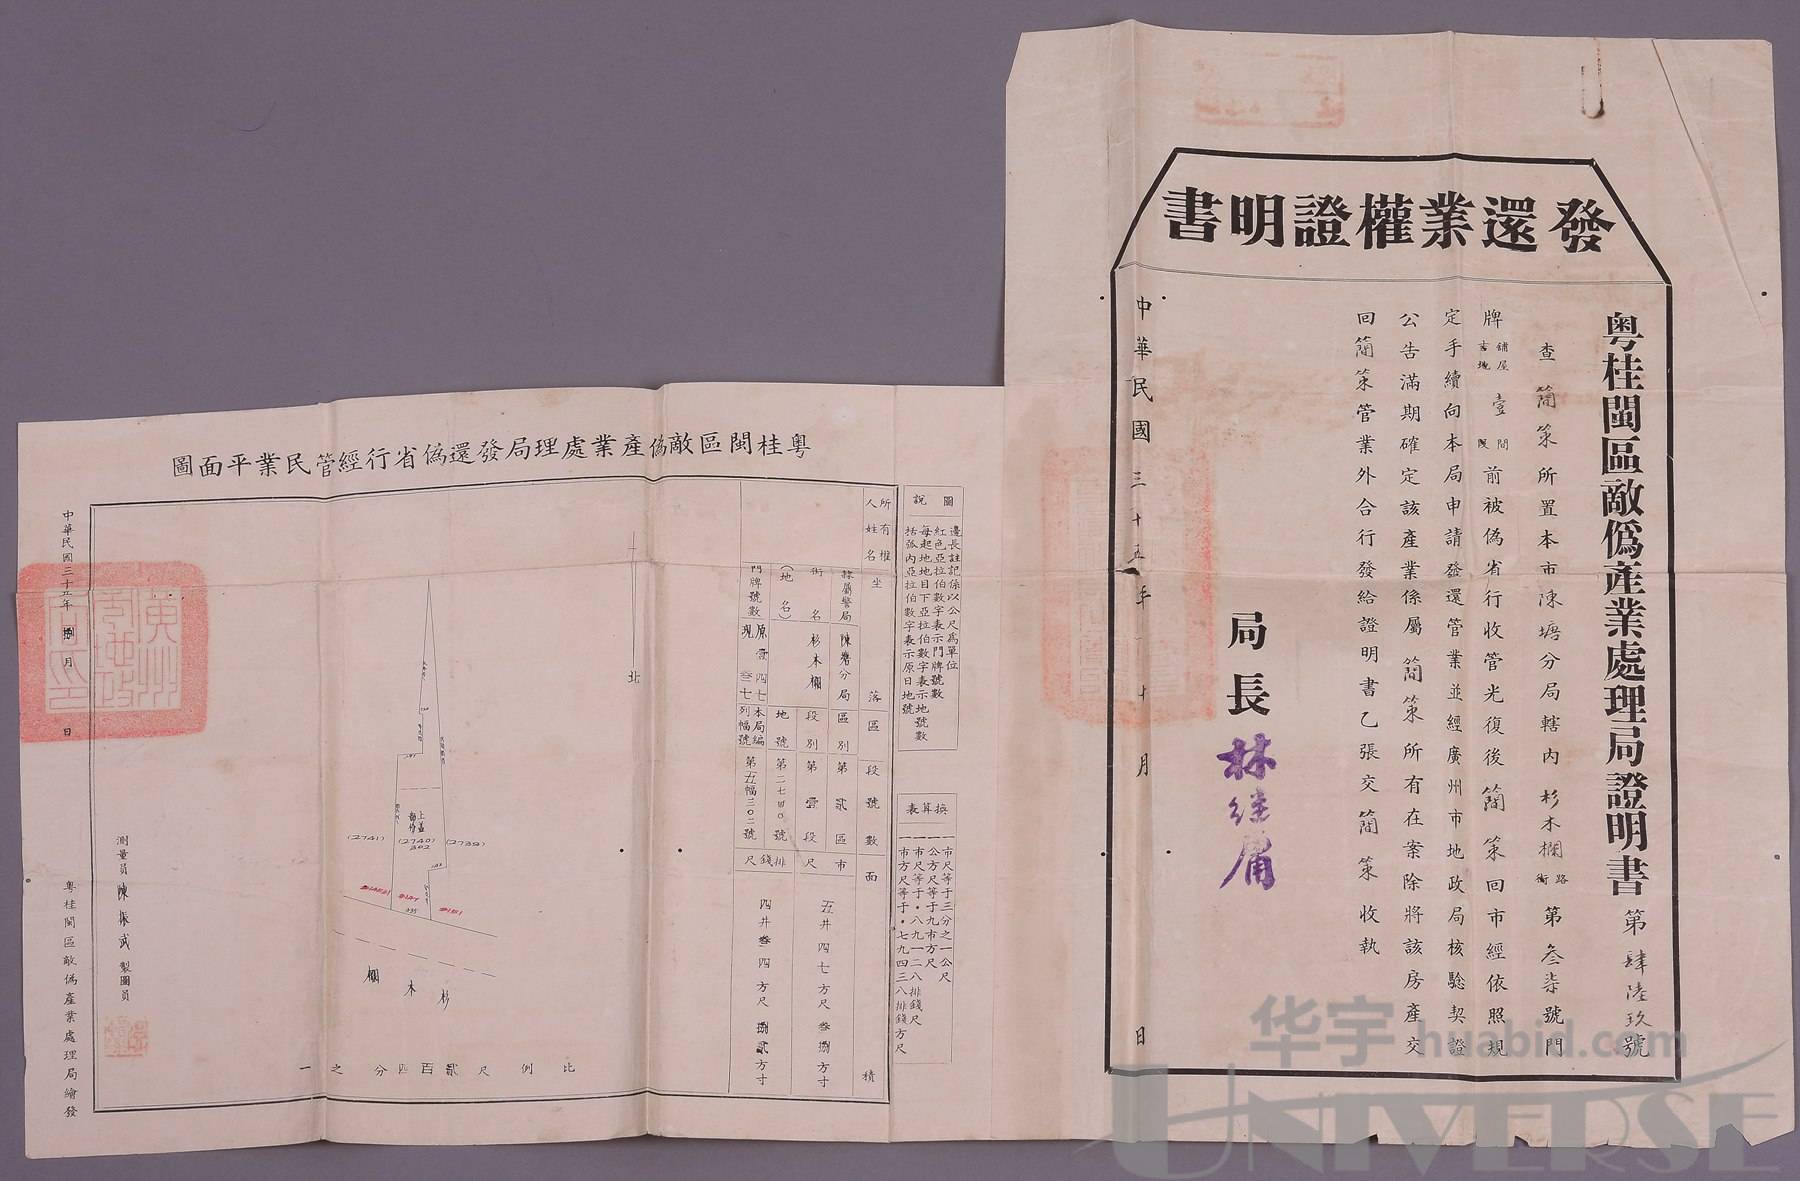 發還業權證明書
粵桂閩區敵偽產業處理局證明書第肆陸玖號
查簡策所置本市陳塘分局轄內杉木欄路街第叁柒號門
牌舖屋吉地壹間段前被偽省行收管光復後簡策回市經依照規
定手續向本局申請發還管業並經廣州市地政局核驗契證
公告滿期確定該產業係屬簡策所有在案除將該房產交
回簡策管業外合行發給證明書乙張交簡策收執
局長林继庸
中華民國三十五年十月日
粵桂閩區敵偽產業處理局發還偽省行經管民業平面圖
圖說
邊長註記係以公尺為單位
紅色亞拉伯數字表示門牌號數
每起地地目下亞拉伯數字表示地號數
括弧內亞拉伯數字表示原日地號
換算表
一市尺等于三分之一公尺
一公方尺等于九市方尺
一市尺等于·八九一二八排錢尺
一市方尺等于·七九四三八排錢方尺
所有權人姓名
坐落
區段號數
面積
隸屬警局
陳塘分局
區別
第貳區
市尺
五井四七方尺叁捌方寸
街名(地名)
杉木欄
段別
第壹段
地號
第二七四〇號
排錢尺
四井叁四方尺捌貳方寸
門牌號數
原壹四七
現叁七
本局編列幅號
第五幅三〇二號
北
上蓋
(2741)
(2740)
302
(2739)
杉木欄
比例尺貳百四分之一
測量員陳振武
製圖員
中華民國三十五年捌月日
粵桂閩區敵偽產業處理局繪發
廣州市地政局印
华宇 huabid.com
UNIVERSE